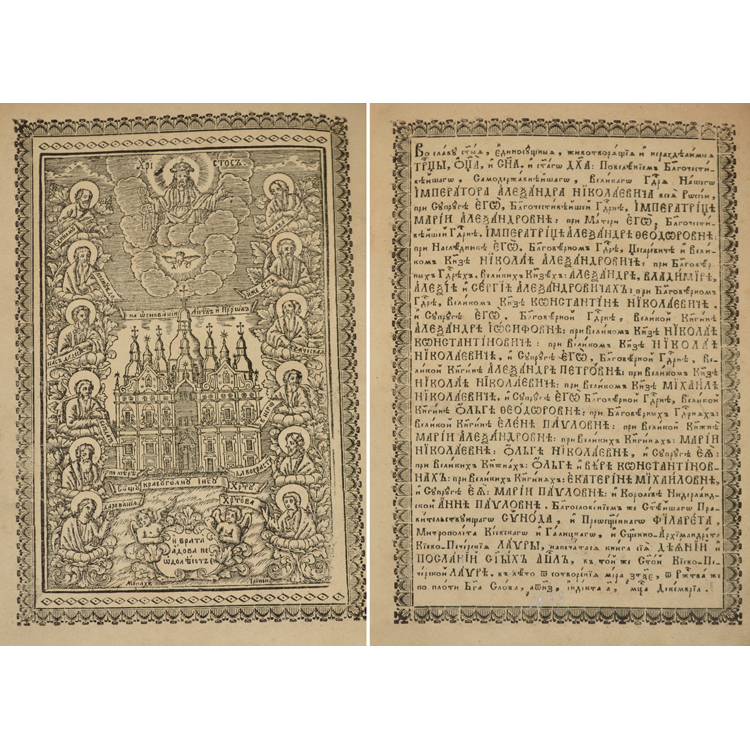 ХРІ СТОСЪ
на ѡснованїи Ап҃лъ и Пр҃ркъ
краеуголну Іису Хр҃те
Хр҃това
и врата
адова не
ѡдолѣютъ
Монахъ
Во славу ст҃ыѧ, є҆диносущныѧ, животворѧщїѧ и҆ нераздѣлимыѧ
ТРЦ҃Ы, Ѻ҆ЦА҃, и҆ СН҃А, и҆ ст҃агѡ ДХ҃А: Повелѣнїемъ Бл҃гочести-
вѣйшагѡ, Самодержавнѣйшагѡ, Великагѡ Гд҃рѧ Нашегѡ
І҆МПЕРАТОРА АЛЕѮАНДРА НІКОЛАЕВИЧА всеѧ Рѡссїи,
при Супругѣ Є҆ГѠ, Бл҃гочестивѣйшей Гд҃рнѣ, І҆МПЕРАТРИЦѢ
МАРІИ АЛЕѮАНДРОВНѢ: при Матери Є҆ГѠ, Бл҃гочести-
вѣйшей Гд҃рнѣ, І҆МПЕРАТРИЦѢ АЛЕѮАНДРѢ ѲЕОДѠРОВНѢ:
при Наслѣдникѣ Є҆ГѠ, Бл҃говѣрномъ Гд҃рѣ, Цесаревичѣ и҆ Вели-
комъ Кн҃зѣ НІКОЛАѢ АЛЕѮАНДРОВИЧѢ: при Бл҃говѣр-
ныхъ Гд҃рѣхъ, Великихъ Кн҃зѣхъ: АЛЕѮАНДРѢ, ВЛАДИМІРѢ,
АЛЕѮІѢ и҆ СЕРГІѢ АЛЕѮАНДРОВИЧАХЪ: при Бл҃говѣрномъ
Гд҃рѣ, Великомъ Кн҃зѣ КѠНСТАНТІНѢ НІКОЛАЕВИЧѢ,
и҆ Супругѣ Є҆ГѠ, Бл҃говѣрной Гд҃рнѣ, Великой Кн҃гинѣ
АЛЕѮАНДРѢ ІѠСИФОВНѢ: при Великомъ Кн҃зѣ НІКОЛАѢ
КѠНСТАНТІНОВИЧѢ: при Великомъ Кн҃зѣ НІКОЛАѢ
НІКОЛАЕВИЧѢ, и҆ Супругѣ Є҆ГѠ, Бл҃говѣрной Гд҃рнѣ, Ве-
ликой Кн҃гинѣ АЛЕѮАНДРѢ ПЕТРОВНѢ: при Великомъ Кн҃зѣ
НІКОЛАѢ НІКОЛАЕВИЧѢ: при Великомъ Кн҃зѣ МІХАИЛѢ
НІКОЛАЕВИЧѢ, и҆ Супругѣ Є҆ГѠ Бл҃говѣрной Гд҃рнѣ, Великой
Кн҃гинѣ Ѻ҆ЛЬГѢ ѲЕОДѠРОВНѢ: при Бл҃говѣрныхъ Гд҃рнахъ:
Великой Кн҃гинѣ Є҆ЛЕНѢ ПАѴЛОВНѢ: при Великой Кн҃жнѣ
МАРІИ АЛЕѮАНДРОВНѢ: при Великихъ Кн҃гинахъ: МАРІИ
НІКОЛАЕВНѢ, Ѻ҆ЛЬГѢ НІКОЛАЕВНѢ, и҆ Супругѣ Є҆Ѧ:
при Великихъ Кн҃жнахъ: Ѻ҆ЛЬГѢ и҆ ВѢРѢ КѠНСТАНТІНОВ-
НАХЪ: при Великихъ Кн҃гинахъ: Є҆КАТЕРІНѢ МІХАИЛОВНѢ,
и҆ Супругѣ Є҆Ѧ: МАРІИ ПАѴЛОВНѢ: и҆ Королевѣ Нидерланд-
ской АННѢ ПАѴЛОВНѢ. Бл҃гословенїемъ же Ст҃ѣйшагѡ Пра-
вительствующагѡ СѴНОДА, и҆ Преѡсщ҃еннагѡ ФІЛАРЕТА,
Митрополита Кїевскагѡ и҆ Галицкагѡ, и҆ Сщ҃енно-А҆рхїмандрїта
Кїево-Печерскїѧ ЛАѴРЫ, напечатасѧ книга сїѧ ДѢѦНІЙ и҆
ПОСЛАНІЙ СТ҃ЫХЪ АП҃ЛЪ, въ той же Ст҃ой Кїево-Пе-
черской ЛАѴРѢ, въ лѣто ѿ сотворенїѧ мїра ҂зт҃ѯе, ѿ Рж҃тва же
по плоти Бг҃а Слова, індїкта а҃, мц҃а Декемврїа.